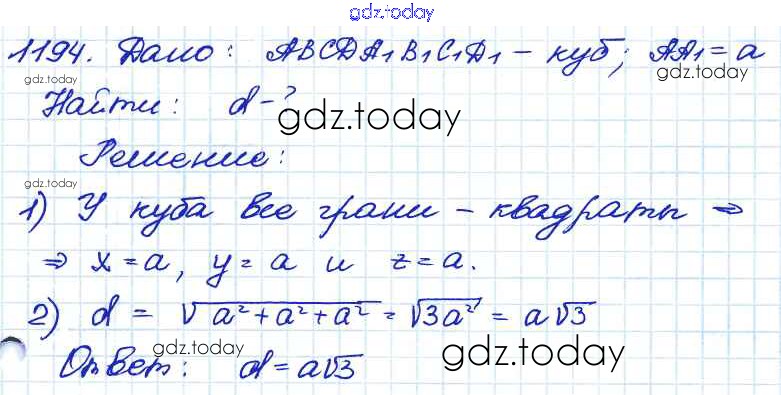 gdz.today
1194. Дано: ABCDA₁B₁C₁D₁ – куб; AA₁ = a
gdz.today
gdz.today
Найти: d – ?
gdz.today
Решение:
gdz.today
1) У куба все грани – квадраты ⇒
⇒ x = a, y = a и z = a.
2) d = √a² + a² + a² = √3a² = a√3
gdz.today
gdz.today
Ответ: d = a√3